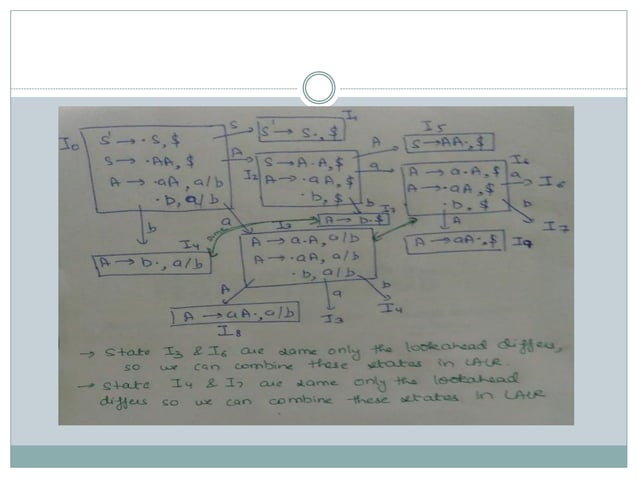 I0
S' → ·S, $
S → ·AA, $
A → ·aA, a/b
·b, a/b
S
I1
S' → S·, $
A
I2
S → A·A, $
A → ·aA, $
·b, $
A
I5
S → AA·, $
a
I6
A → a·A, $
A → ·aA, $
·b, $
a
I6
b
I7
A
A → aA·, $
I9
b
I7
A → b·$
b
I4
A → b·, a/b
a
I3
A → a·A, a/b
A → ·aA, a/b
·b, a/b
A
A → aA·, a/b
I8
a
I3
b
I4
→ State I3 & I6 are same only the lookahead differs,
so we can combine these states in LALR.
→ State I4 & I7 are same only the lookahead
differs so we can combine these states in LALR